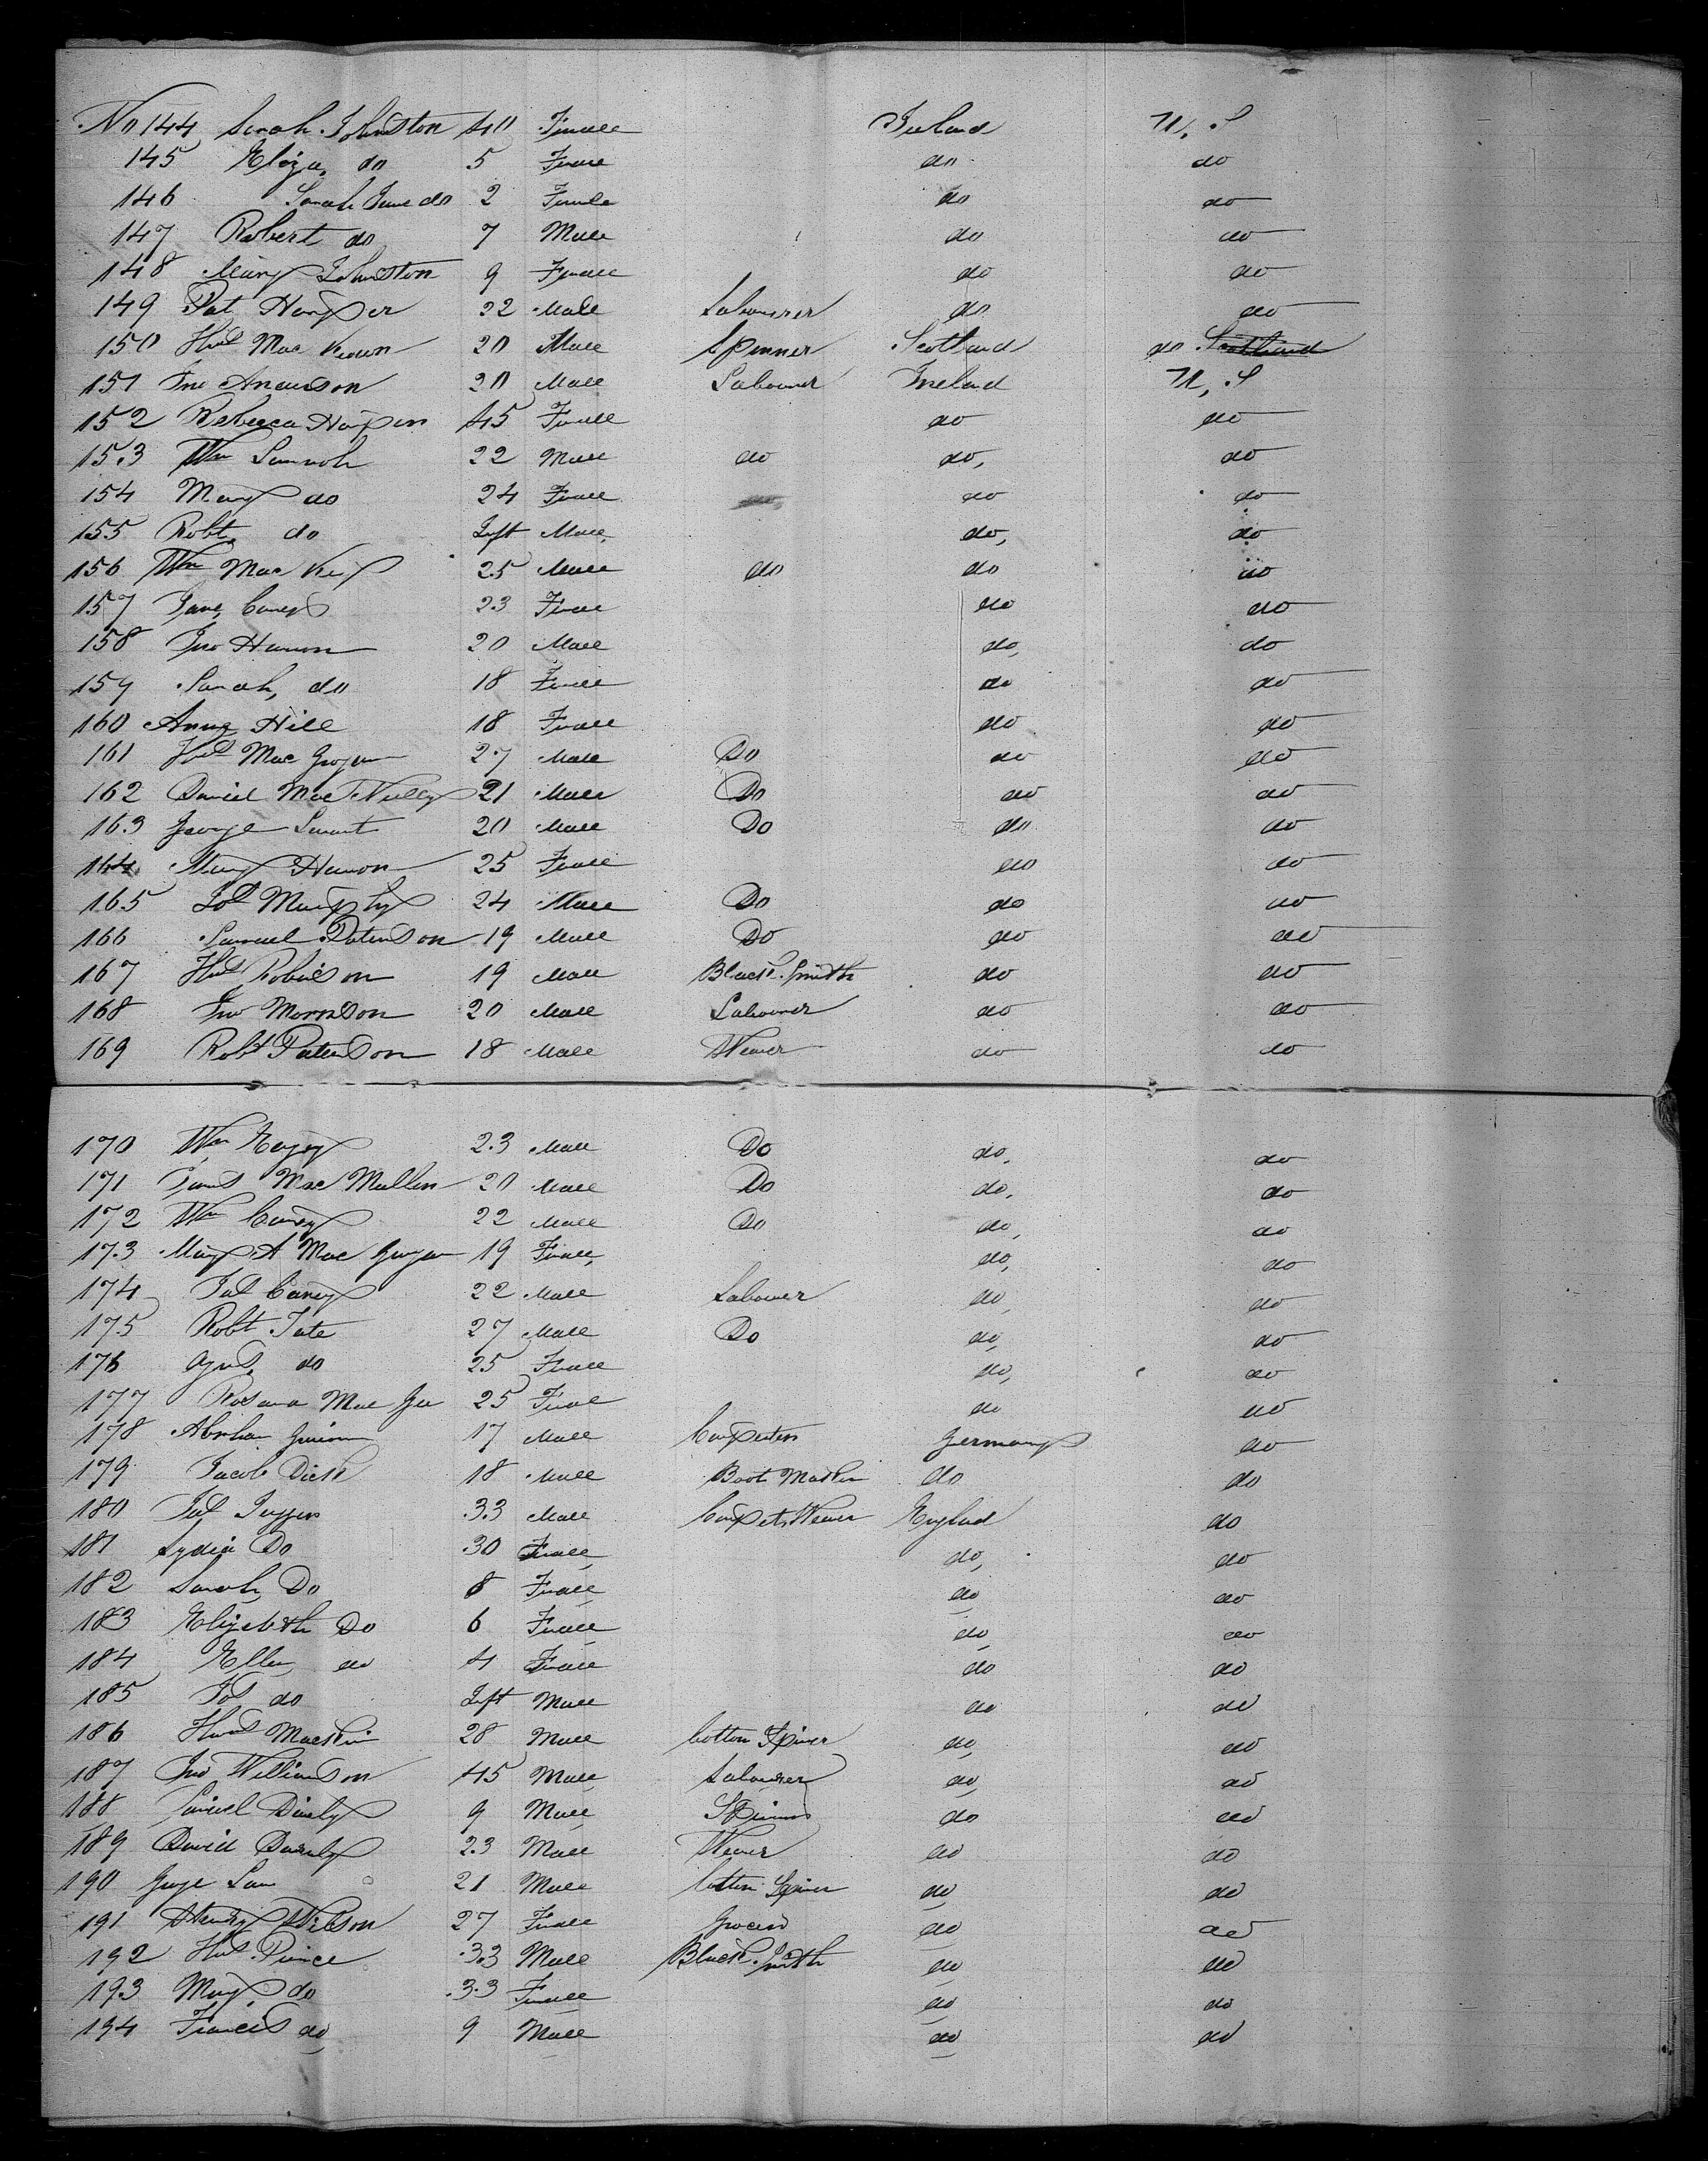 No 144 Sarah Johnston 40 Female Ireland U. S
145 Eliza do 5 Female do do
146 Sarah Jane do 2 Female do do
147 Robert do 7 Male do do
148 Mary Johnston 9 Female do do
149 Pat Harper 22 Male Labourer do do
150 Thos Mac Keown 20 Male Spinner Scotland do Scotland
151 Jno Anderson 20 Male Labourer Ireland U, S
152 Rebecca Harper 45 Female do do
153 Wm 22 Male do do, do
154 Mary do 24 Female do do
155 Robt do Inft Male do, do
156 Wm Mac Key 25 Male do do do
157 Jane Carey 23 Female do do
158 Jno Hannon 20 Male do, do
159 Sarah, do 18 Female do do
160 Anne Hill 18 Female do do
161 Thos Mac 27 Male Do do do
162 David Mac Nully 21 Male Do do do
163 George 20 Male Do do do
164 Mary Hannon 25 Female do do
165 Jos Murphy 24 Male Do do do
166 Samuel Paterson 19 Male Do do do
167 Thos Robinson 19 Male Black Smith do do
168 Jno Morrison 20 Male Labourer do do
169 Robt Paterson 18 Male Weaver do do
170 Wm 23 Male Do do, do
171 James Mac Mullen 20 Male Do do, do
172 Wm Carey 22 Male Do do, do
173 Mary A Mac 19 Female, do, do
174 Jas Carey 22 Male Labourer do do
175 Robt Tate 27 Male Do do, do
176 Agns, do 25 Female do, do
177 Rosana Mac Gee 25 Female do do
178 Abraham 17 Male Carpenter Germany do
179 Jacob Dick 18 Male Boot Maker do do
180 Jas 33 Male Carpet Weaver England do
181 Lydia Do 30 Female do, do
182 Sarah Do 8 Female do do
183 Elizabeth Do 6 Female do do
184 Ellen do 4 Female do do
185 Jos do Inft Male do do
186 Thos 28 Male Cotton Spiner do, do
187 Jno Williamson 45 Male Labourer do, do
188 Samuel 9 Male Spinner do do
189 David 23 Male Weaver do do
190 George 21 Male Cotton Spiner do, do
191 Henry Wilson 27 Female Grocer do do
192 Thos Prince 33 Male Black Smith do do
193 Mary do 33 Female do do
194 Francis do 9 Male do do